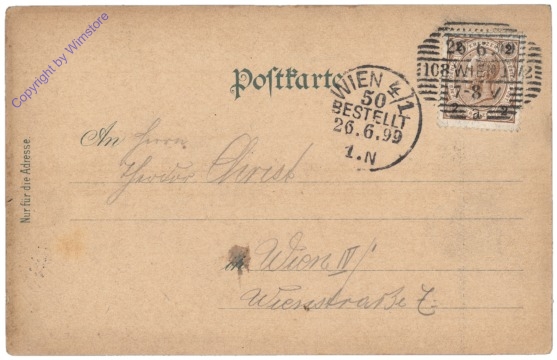 Copyright by Wimstore
Postkarte
26 6
108 WIEN 1/2
7-8 V
WIEN 4/1
50
BESTELLT
26.6.99
1.N
An Herrn
Theodor Christ
Nur für die Adresse.
in Wien IV/
Wienstraße 7.